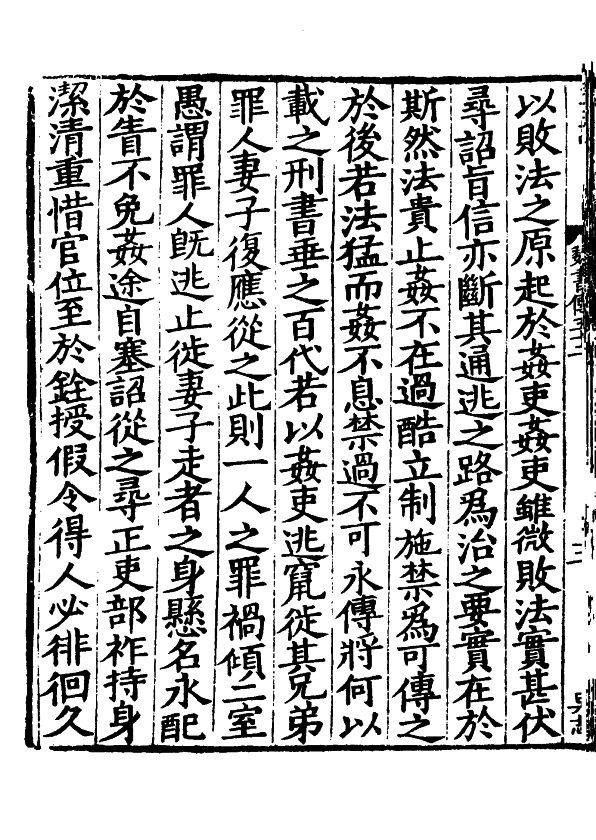 以敗法之原起於姦吏姦吏雖微敗法實甚伏
尋詔旨信亦斷其通逃之路為治之要實在於
斯然法貴止姦不在過酷立制施禁為可傳之
於後若法猛而姦不息禁過不可永傳將何以
載之刑書垂之百代若以姦吏逃竄徙其兄弟
罪人妻子復應從之此則一人之罪禍傾二室
愚謂罪人旣逃止徙妻子走者之身懸名永配
於眚不免姦途自塞詔從之尋正吏部祚持身
潔清重惜官位至於銓授假令得人必徘徊久
魏書傳五十二
三